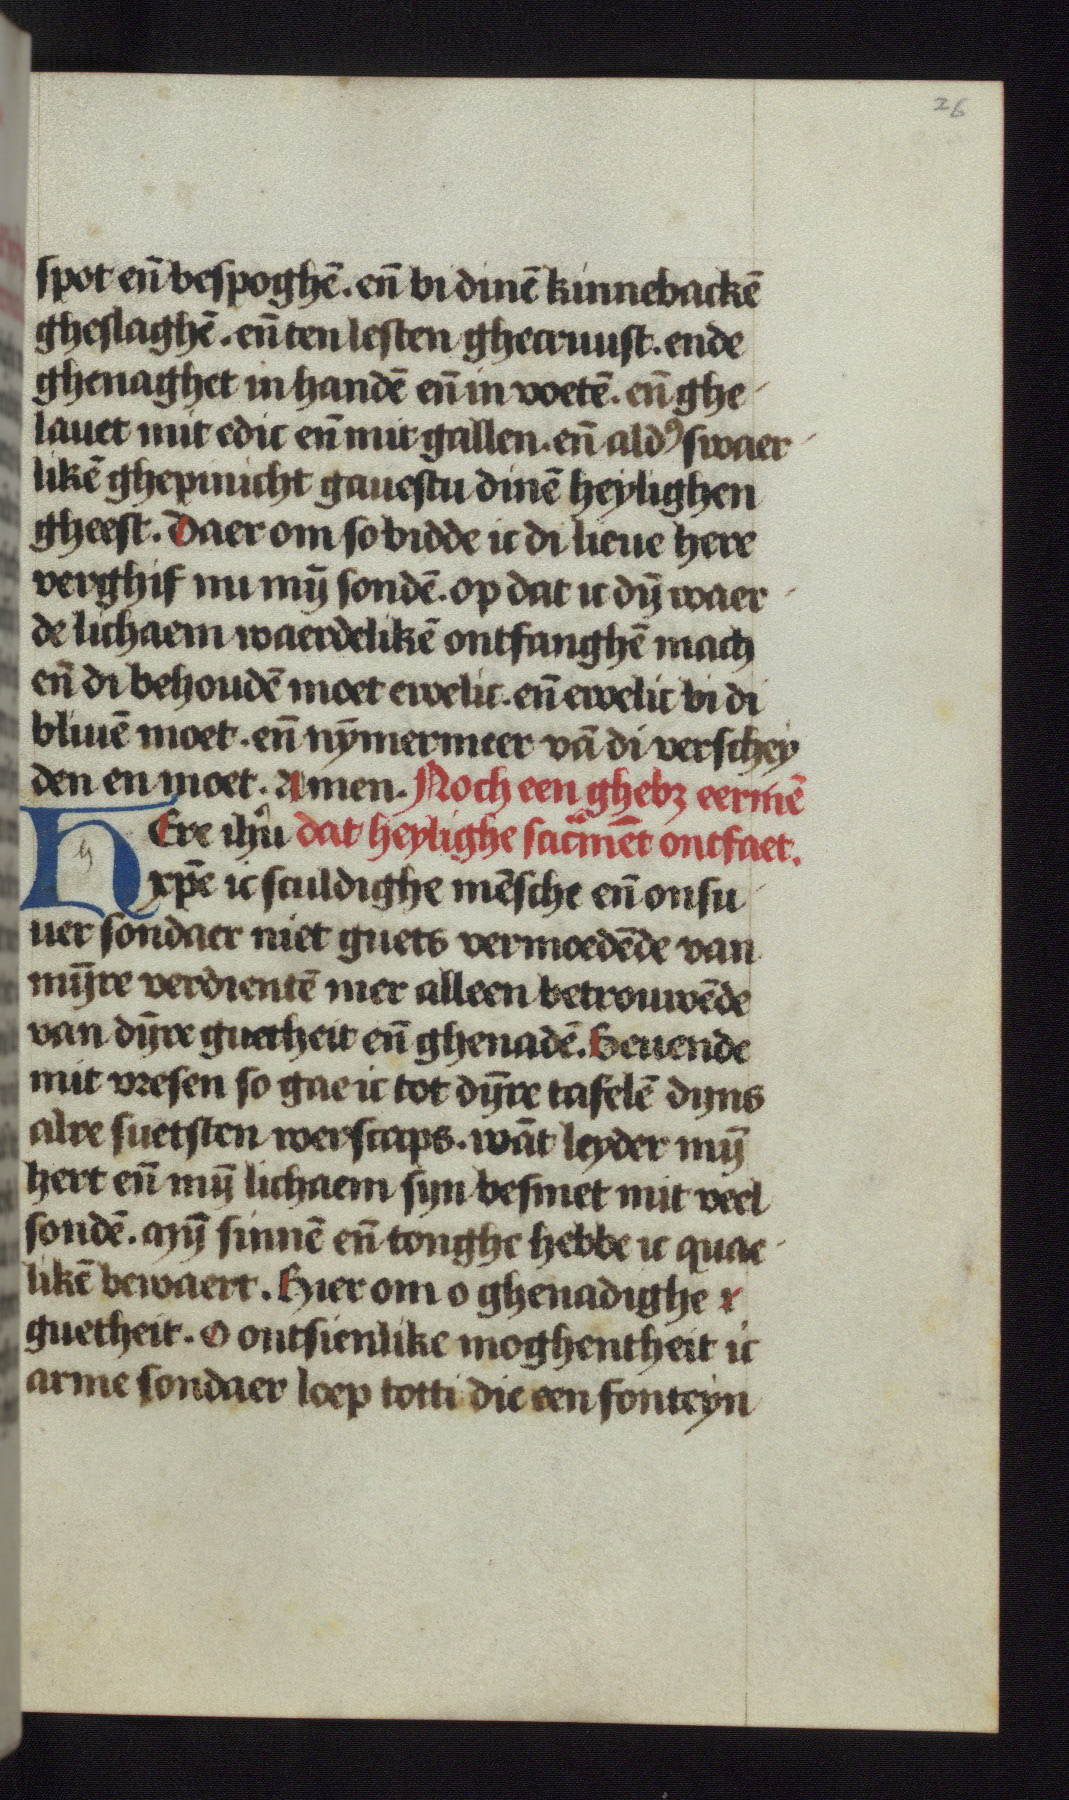 26
spot en̄ bespoghē. en̄ bi dinē kinnebackē
gheslaghē. en̄ ten lesten ghecruust. ende
ghenaghet in handē en̄ in voetē. en̄ ghe
lauet mit edic en̄ mit gallen. en̄ ald᾿ swaer
likē ghepinicht gauestu dinē heylighen
gheest. Daer om so bidde ic di lieue here
verghif mi mȳ sondē. op dat ic dȳ waer
de lichaem waerdelikē ontfanghē mach
en̄ di behoudē moet ewelic. en̄ ewelic bi di
bliuē moet. en̄ nȳmermeer vā di verschey
den en moet. Amen. Noch een ghebꝫ eermē
HEre ihū dat heylighe sacͣmēt ontfaet.
xp̄e ic sculdighe mēsche en̄ onsu
uer sondaer niet guets vermoedēde van
mȳre verdientē mer alleen betrouwēde
van dȳre guetheit en̄ ghenadē. Beuende
mit vresen so gae ic tot dȳre tafelē dyns
alre suetsten werscaps. wāt leyder mȳ
hert en̄ mȳ lichaem syn besmet mit veel
sondē. mȳ sinnē en̄ tonghe hebbe ic quae
likē bewaert. Hier om o ghenadighe
guetheit. O ontsienlike moghentheit ic
arme sondaer loep totti die een fonteyn